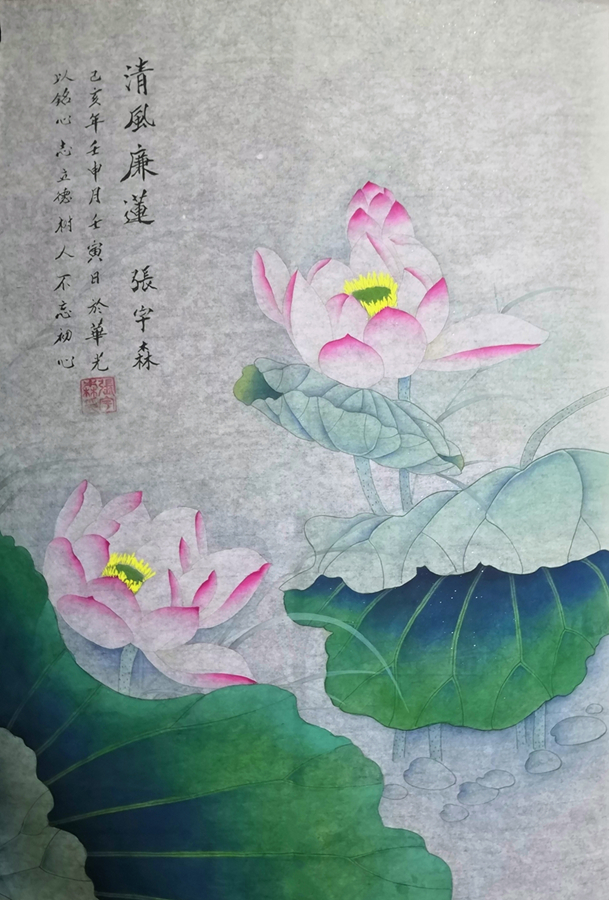 清風廉蓮 張宇森
己亥年壬申月壬寅日於華光
以銘心志立德樹人不忘初心